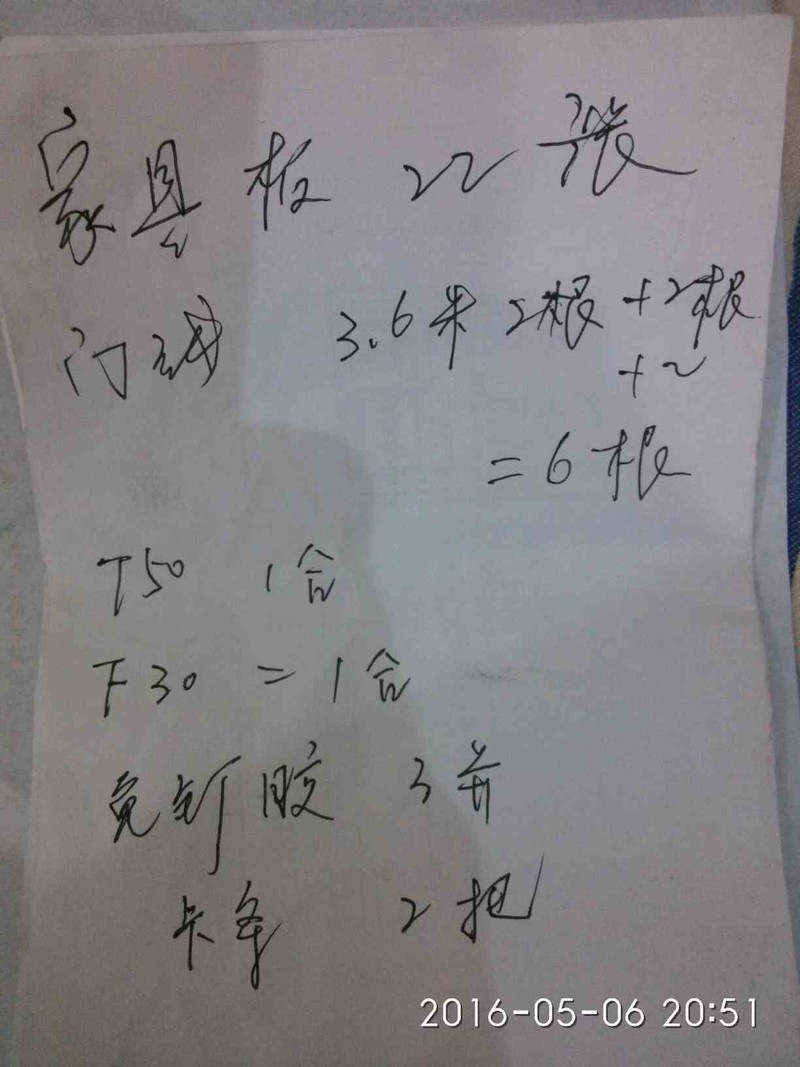 家具板 22张
门线 3.6米 2根+2根
+2
=6根
T50 1合
F30 = 1合
免钉胶 3并
卡条 2把
2016-05-06 20:51